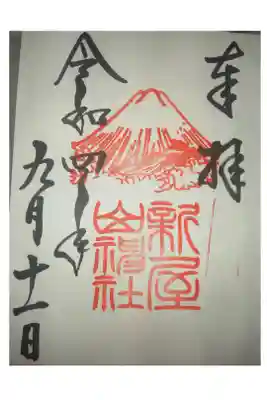 奉拝
新屋
山神社
令和四年
九月十一日